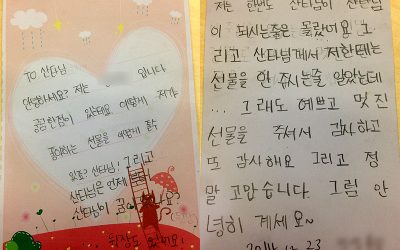 TO 산타님
안녕하세요? 저는 입니다
궁금한점이 있는데요 어떻게 저가
좋아하는 선물을 어떻게 알수
있죠? 산타님! 그리고
산타님은 언제부터
산타님이
뒷장도 있어요!
저는 한번도 산타님이 산타님
이 되시는줄은 몰랐어요 그
리고 산타님께서 저한테는
선물을 안 주시는줄 알았는데
... 그래도 예쁘고 멋진
선물을 주셔서 감사하고
또 감사해요 그리고 정
말 고맙습니다. 그럼 안
녕히 계세요~
12. 23